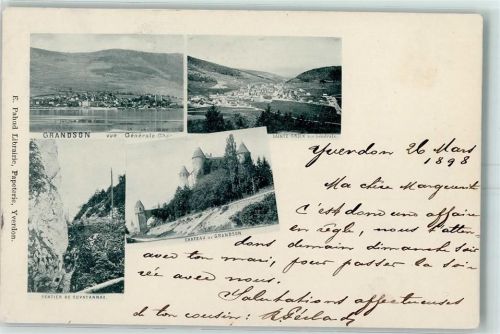 E. Pahud Librairie, Papeterie, Yverdon.
GRANDSON vue Générale
SAINTE-CROIX
CHATEAU de GRANDSON
SENTIER DE COVATANNAZ.
Yverdon 26 Mars
1898
Ma chère Marguerite
C'est donc une affaire
en règle, nous t'atten-
dons demain dimanche soir
avec ton mari, pour passer la soi-
rée avec nous.
Salutations affectueuses
de ton cousin: